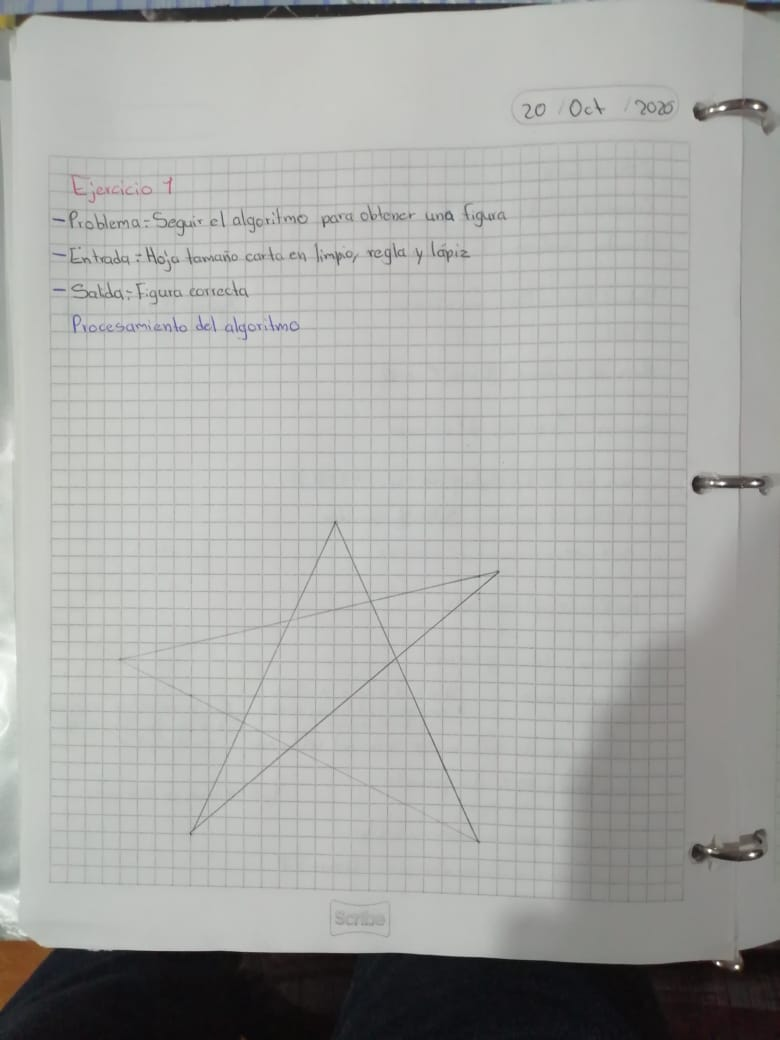 20 / Oct / 2020
Ejercicio 1
- Problema: Seguir el algoritmo para obtener una figura
- Entrada: Hoja tamaño carta en limpio, regla y lápiz
- Salida: Figura correcta
Procesamiento del algoritmo
Scribe